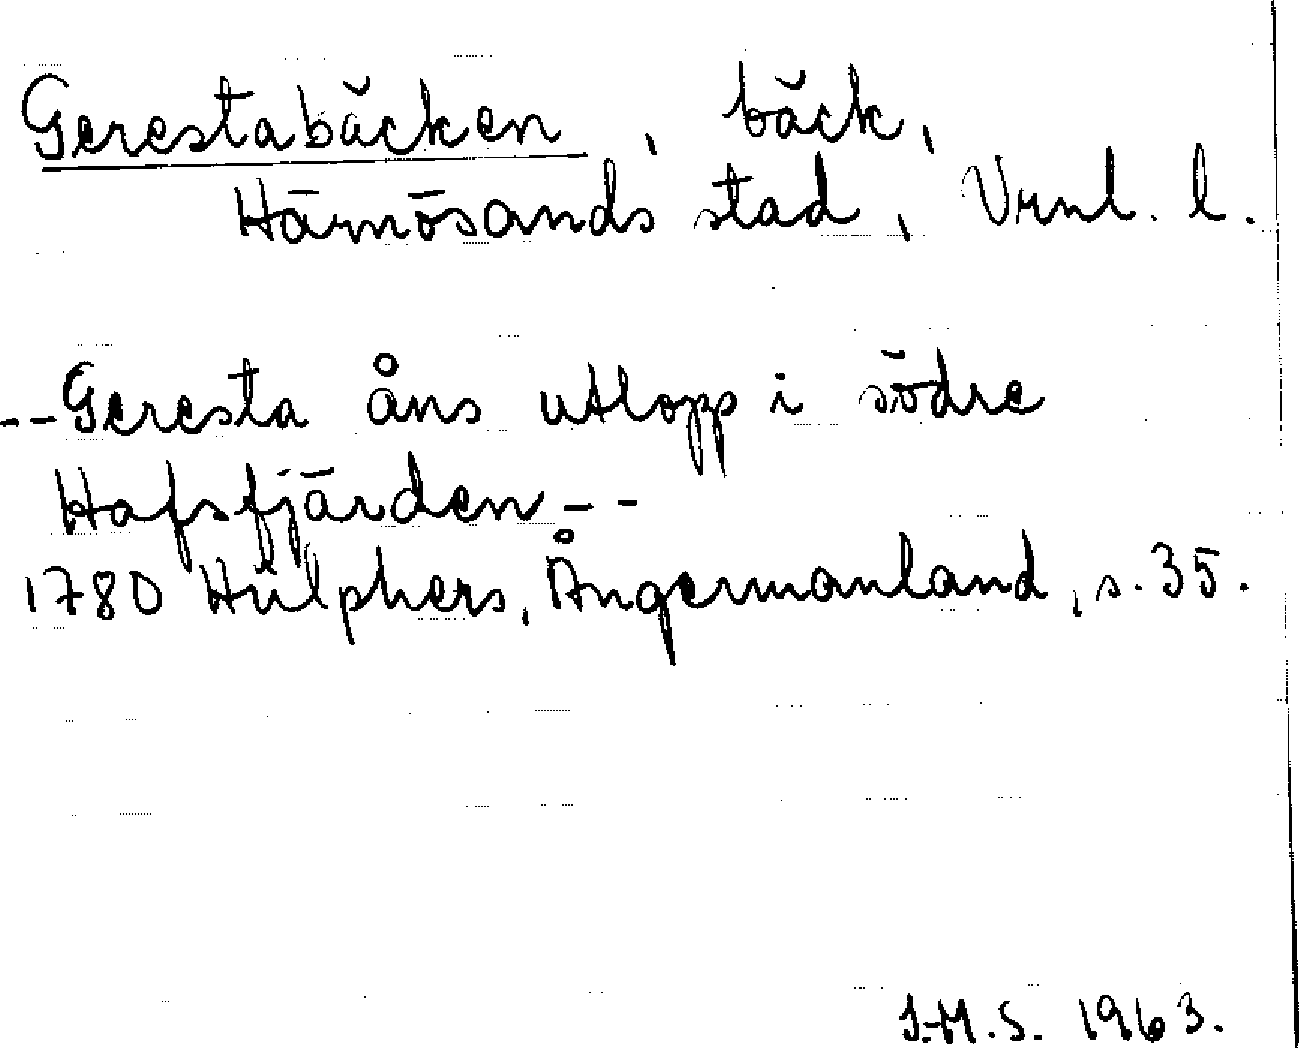 Gerestabäcken, bäck,
Härnösands stad, Vrnl. l.
--Geresta åns utlopp i södre
Hafsfjärden--
1780 Hülphers, Ångermanland, s. 35.
I.-M.S. 1963.